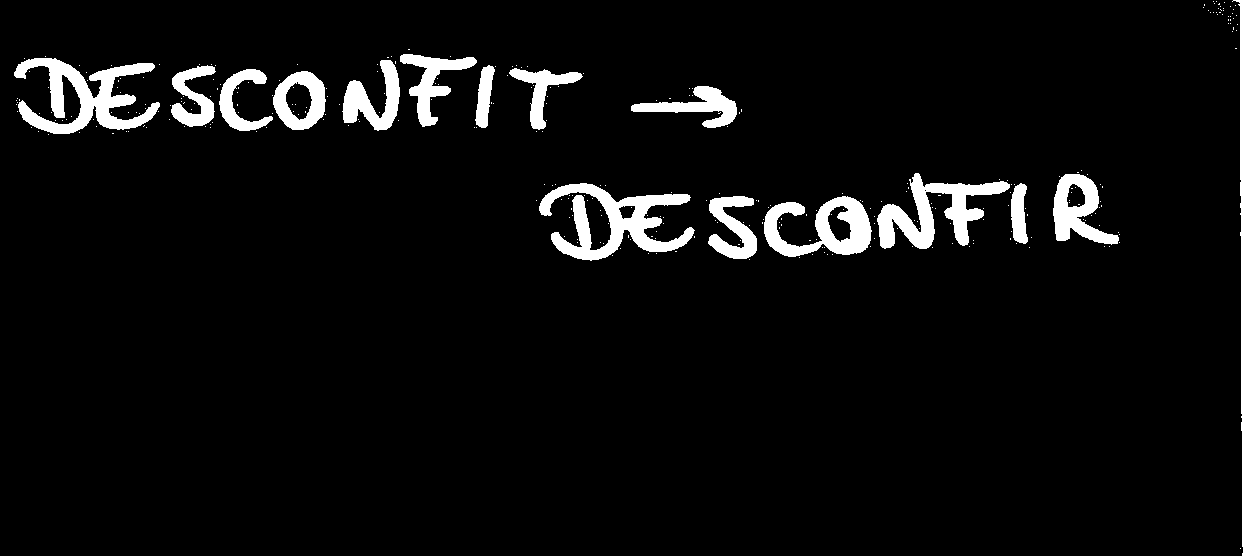 DESCONFIT →
DESCONFIR